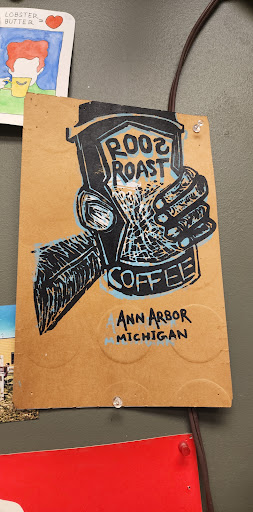 LOBSTER
BUTTER =
ROOS
ROAST
COFFEE
ANN ARBOR
MICHIGAN